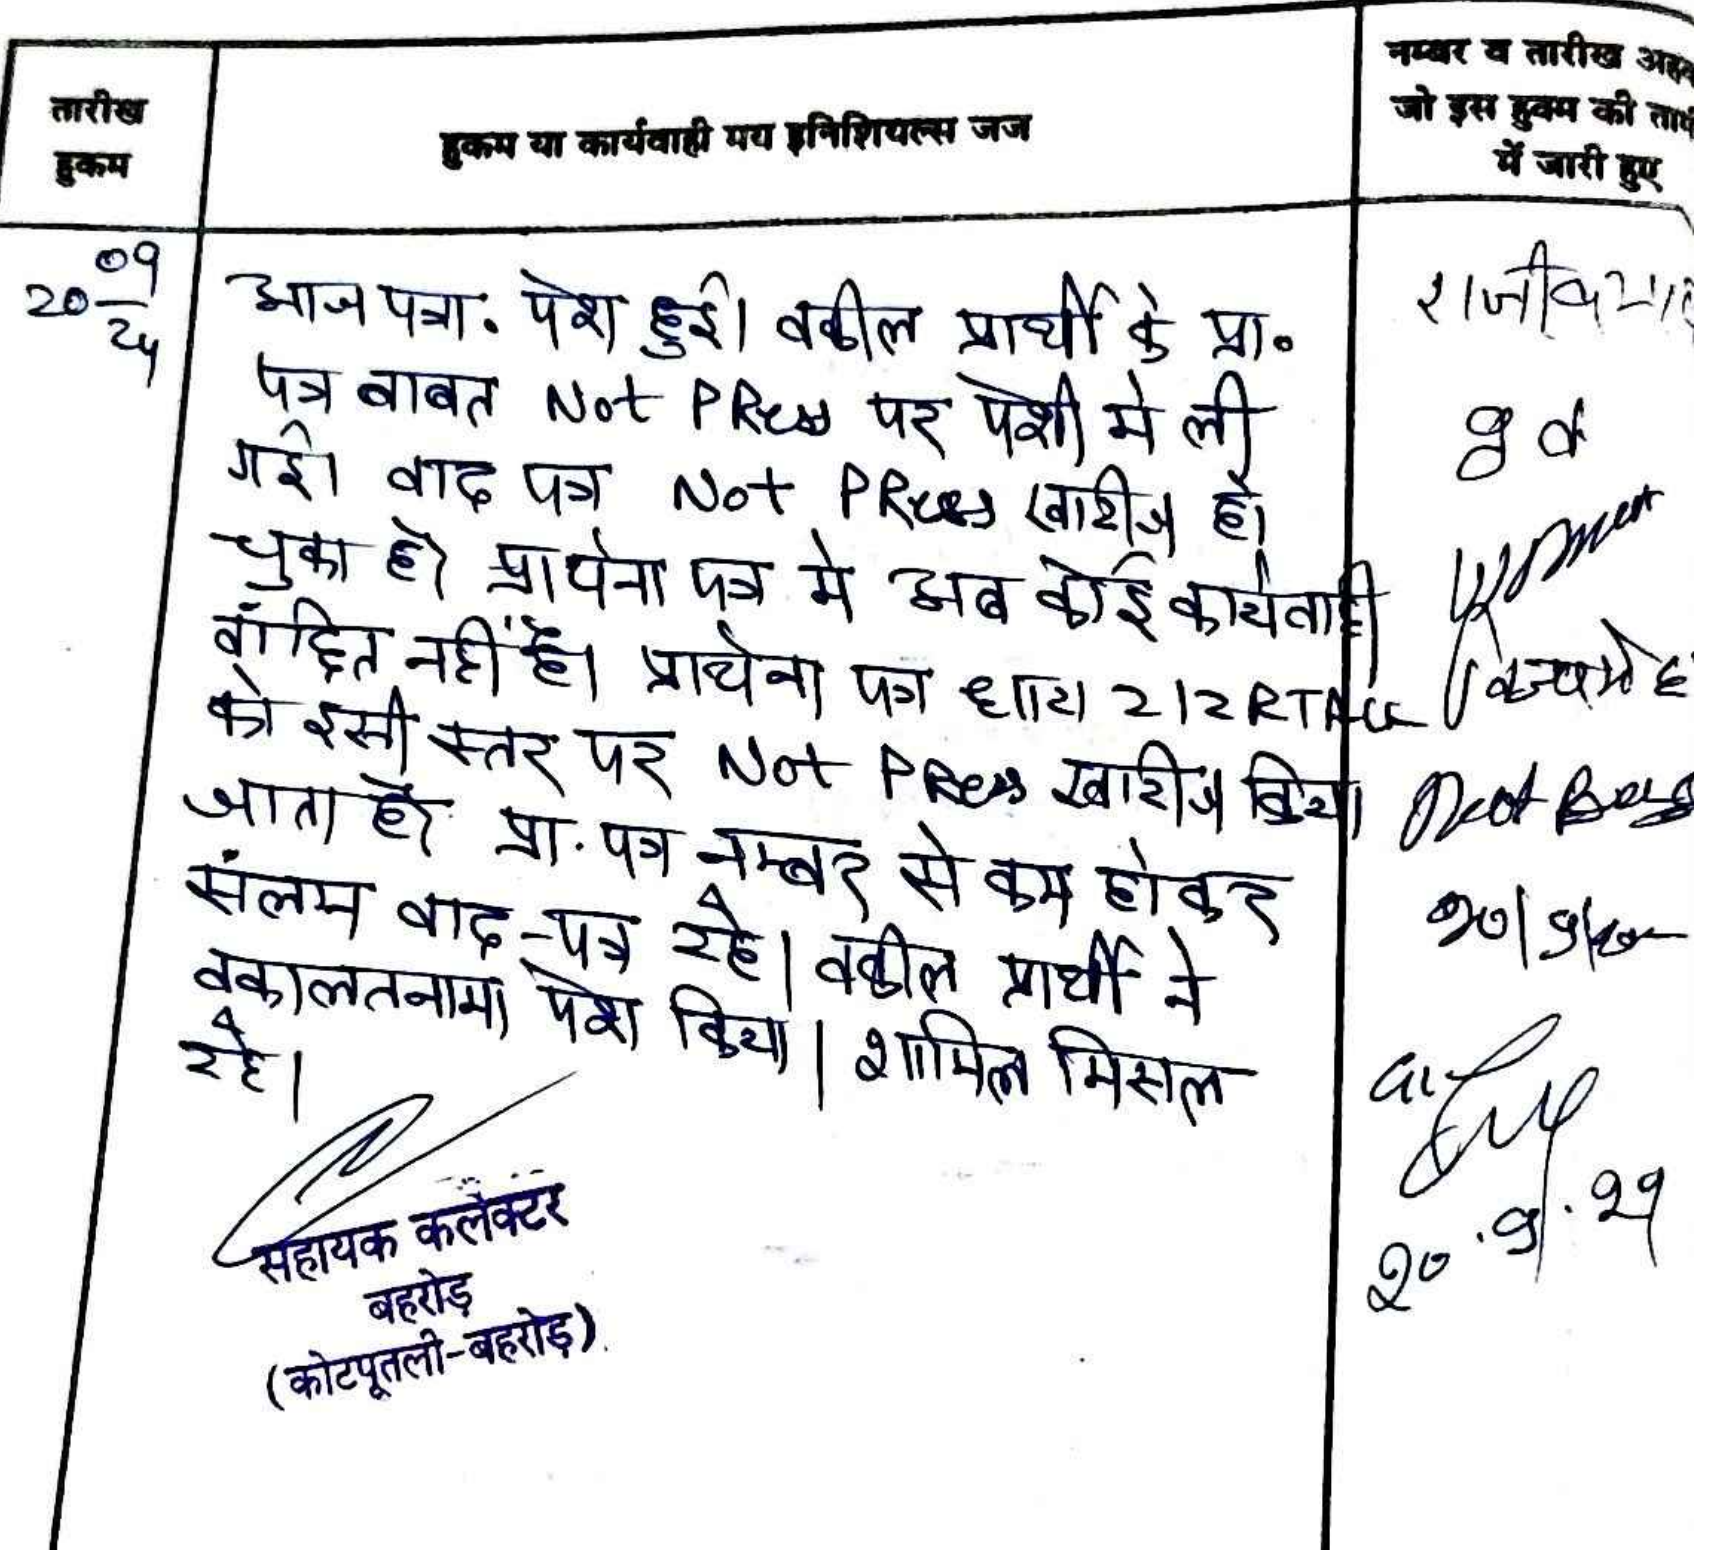 तारीख
हुकम
हुकम या कार्यवाही मय इनिशियल्स जज
नम्बर व तारीख
जो इस हुक्म की
में जारी हुए
20 09
24
आज पत्रा. पेश हुई। वकील प्रार्थी के प्रा.
पत्र बाबत Not PRess पर पेशी मे ली
गई। वाद पत्र Not PRess खारीज हो
चुका है। प्रार्थना पत्र मे अब कोई कार्यवाही
वांछित नहीं है। प्रार्थना पत्र धारा 212 RTAct
को इसी स्तर पर Not PRess खारीज किया
जाता है। प्रा. पत्र नम्बर से कम होकर
संलग्न वाद-पत्र रहे। वकील प्रार्थी ने
वकालतनामा पेश किया। शामिल मिसल
रहे।
20.9.24
सहायक कलेक्टर
बहरोड़
(कोटपूतली-बहरोड़)